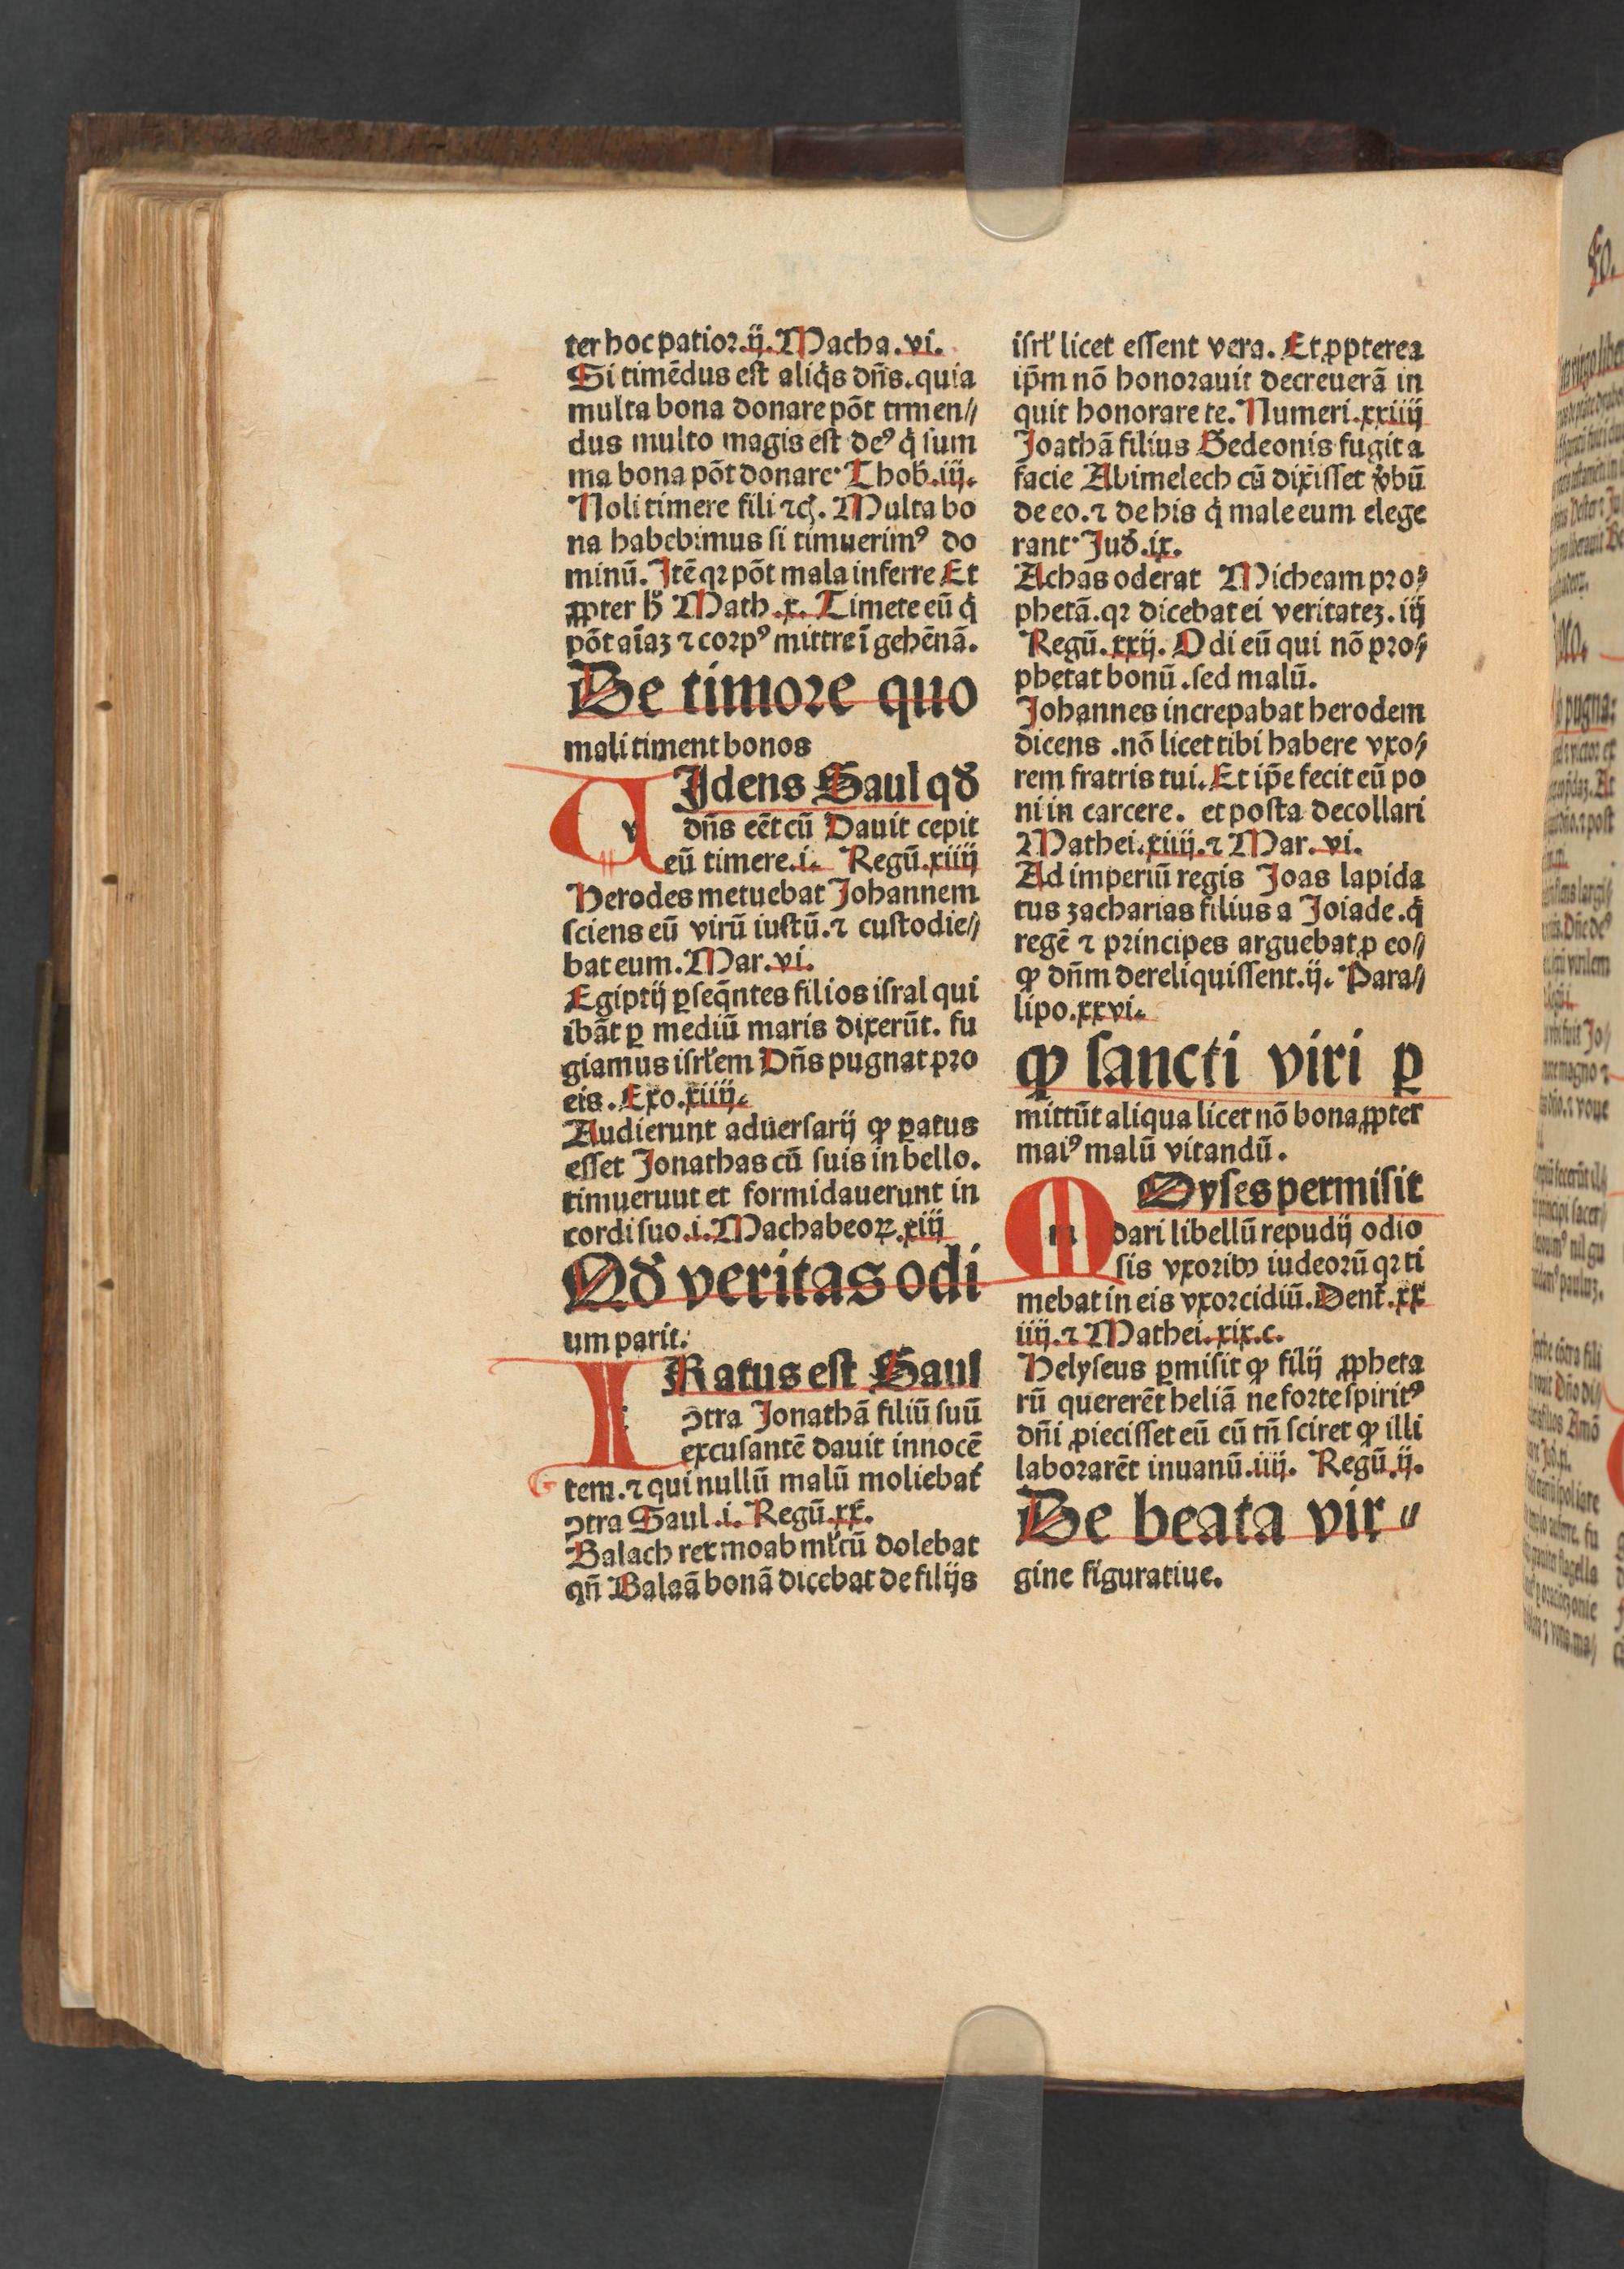 ter hoc patior.ij.Macha.vi.
Si timēdus est aliq̇s dn̄s.quia
multa bona donare pōt trmen//
dus multo magis est deꝰ q̇ sum
ma bona pōt donare· Thob̄.iij.
Noli timere fili ⁊cꝭ. Multa bo
na habebimus si timuerimꝰ do
minū. Itē qꝛ pōt mala inferre Et
ꝓpter hͦ Math.x. Timete eū q̇
pōt aīaꝫ ⁊ corpꝰ mittre ī gehēnā.
De timore quo
mali timent bonos
v
Idens Saul qđ
dn̄s eēt cū Dauit cepit
eū timere.i. Regū.xiiij
Herodes metuebat Johannem
sciens eū virū iustū.⁊ custodie//
bat eum.Mar.vi.
Egiptij ꝑseq̄ntes filios isral qui
ibāt ꝑ mediū maris dixerūt. fu
giamus isrł'em Dn̄s pugnat pro
eis. Exo.xiiij.
Audierunt aduersarij ꝙ ꝑatus
esset Jonathas cū suis in bello.
timueruut et formidauerunt in
cordi suo.i.Machabeoꝝ.xiij
Qđ veritas odi
um parit.
I
Ratus est Saul
ꝯtra Jonathā filiū suū
excusantē dauit innocē
tem.⁊ qui nullū malū moliebat᷑
ꝯtra Saul.i. Regū.xx.
Balach rex moab mł'tū dolebat
qn̄ Balaā bonā dicebat de filijs
isrł' licet essent vera. Et ꝓpterea
ip̄m nō honorauit decreuerā in
quit honorare te. Numeri.xxiiij
Joathā filius Gedeonis fugit a
facie Abimelech cū dixisset v̓bū
de eo.⁊ de his q̇ male eum elege
rant· Juđ.ix.
Achas oderat Micheam pro//
phetā.qꝛ dicebat ei veritateꝫ.iij
Regū.xxij. Odi eū qui nō pro//
phetat bonū.sed malū.
Johannes increpabat herodem
dicens .nō licet tibi habere vxo//
rem fratris tui. Et ip̄e fecit eū po
ni in carcere. et posta decollari
Mathei.xiiij.⁊ Mar.vi.
Ad imperiū regis Joas lapida
tus zacharias filius a Joiade.q̇
regē ⁊ principes arguebat ꝓ eo//
ꝙ dn̄m dereliquissent.ij. Para//
lipo.xxvi.
ꝙ sancti viri ꝑ
mittūt aliqua licet nō bona ꝓpter
maiꝰ malū vitandū.
m
Oyses permisit
dari libellū repudij odio
sis vxoribꝰ iudeorū qꝛ ti
mebat in eis vxorcidiū. Dent̄.xx
iiij.⁊ Mathei.xix.c.
Helyseus ꝑmisit ꝙ filij ꝓpheta
rū quererēt heliā ne forte spiritꝰ
dn̄i ꝓiecisset eū cū tn̄ sciret ꝙ illi
laborarēt inuanū.iiij. Regū.ij.
De beata vir//
gine figuratiue.